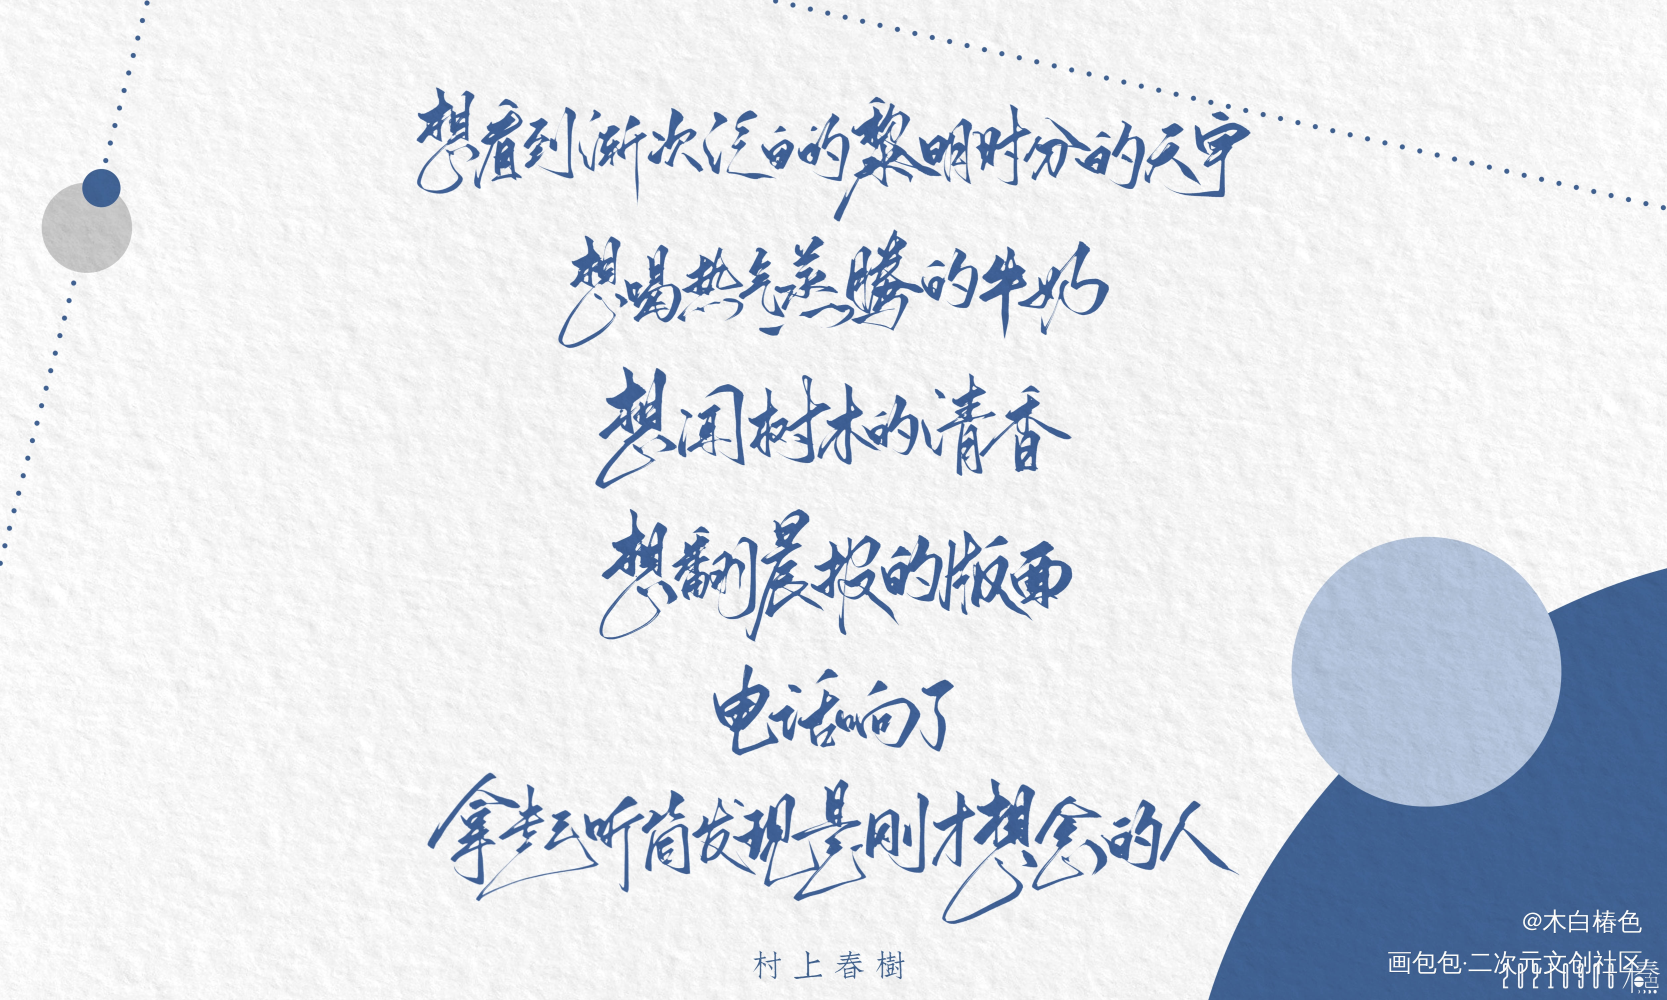 想看到渐次泛白的黎明时分的天宇
想喝热气蒸腾的牛奶
想闻树木的清香
想翻晨报的版面
电话响了
拿起听筒发现是刚才想念的人
村上春樹
@木白椿色
画包包·二次元文创社区
20210908